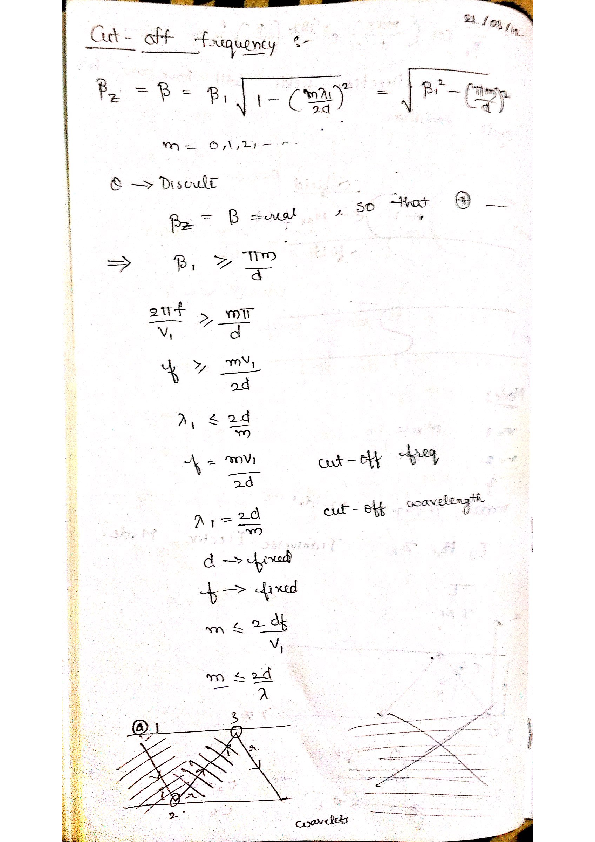 Cut-off frequency :-
β_z = β = β₁ √(1 - (mλ₁/2d)²) = √(β₁² - (πm/d)²)
m = 0,1,2, - - -
θ → Discrete
β_z = β = real , so that - -
⇒ β₁ ≥ πm/d
2πf/V₁ ≥ mπ/d
f ≥ mV₁/2d
λ₁ ≤ 2d/m
f = mV₁/2d cut-off freq
λ₁ = 2d/m cut-off wavelength
d → fixed
f → fixed
m ≤ 2df/V₁
m ≤ 2d/λ
1 3
2
wavelets